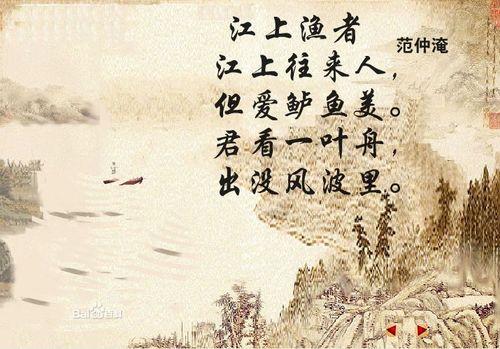 江上渔者
范仲淹
江上往来人，
但爱鲈鱼美。
君看一叶舟，
出没风波里。
Bai百科